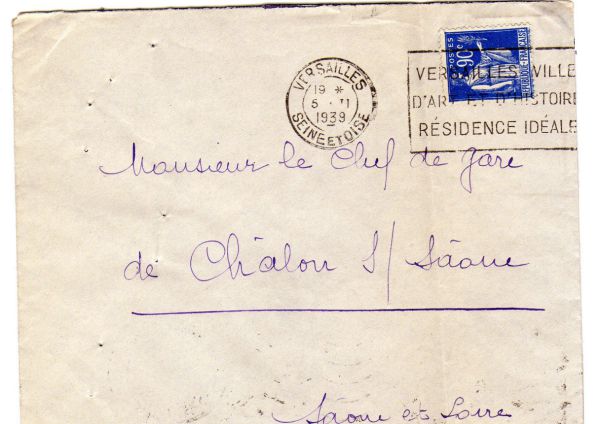 POSTES 90c
RÉPUBLIQUE FRANÇAISE
VERSAILLES
19 *
5 · II
1939
SEINE ET OISE
VERSAILLES VILLE
D'ART ET D'HISTOIRE
RÉSIDENCE IDÉALE
Monsieur le Chef de Gare
de Châlon S/ Sâone
Sâone et Loire